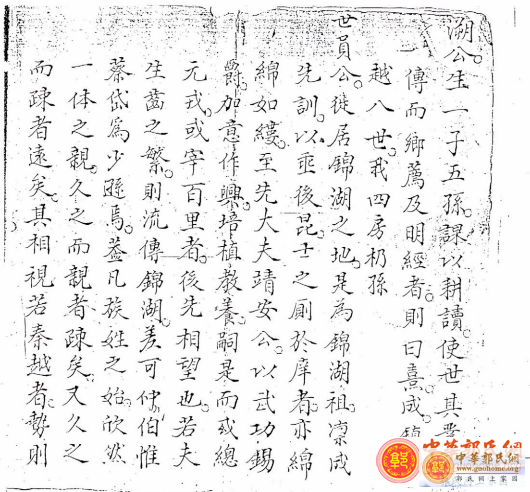 溯公生一子五孫。課以耕讀。使世其業
一傳而鄉薦及明經者。則曰熹成。
越八世。我四房礽孫
世員公。徙居錦湖之地。是為錦湖祖。凛成
先訓。以垂後昆。士之厠於庠者。亦綿
綿如縷。至先大夫靖安公。以武功錫
爵。加意作興。培植教養。嗣是而或總
元戎。或宰百里者。後先相望也。若夫
生齒之繁。則流傳錦湖。差可伯惟
蔡岱為少遜焉。蓋凡族姓之始。欣然
一体之親。久之而親者疎矣。又久之
而疎者遠矣。其相視若秦越者。勢則
中華郭氏網
中華郭氏網
www.guohome.org
郭氏網上家園